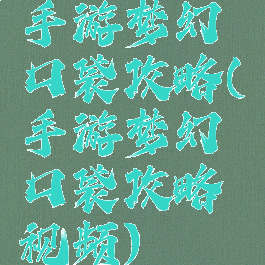 手游梦幻
口袋攻略(
手游梦幻
口袋攻略
视频)